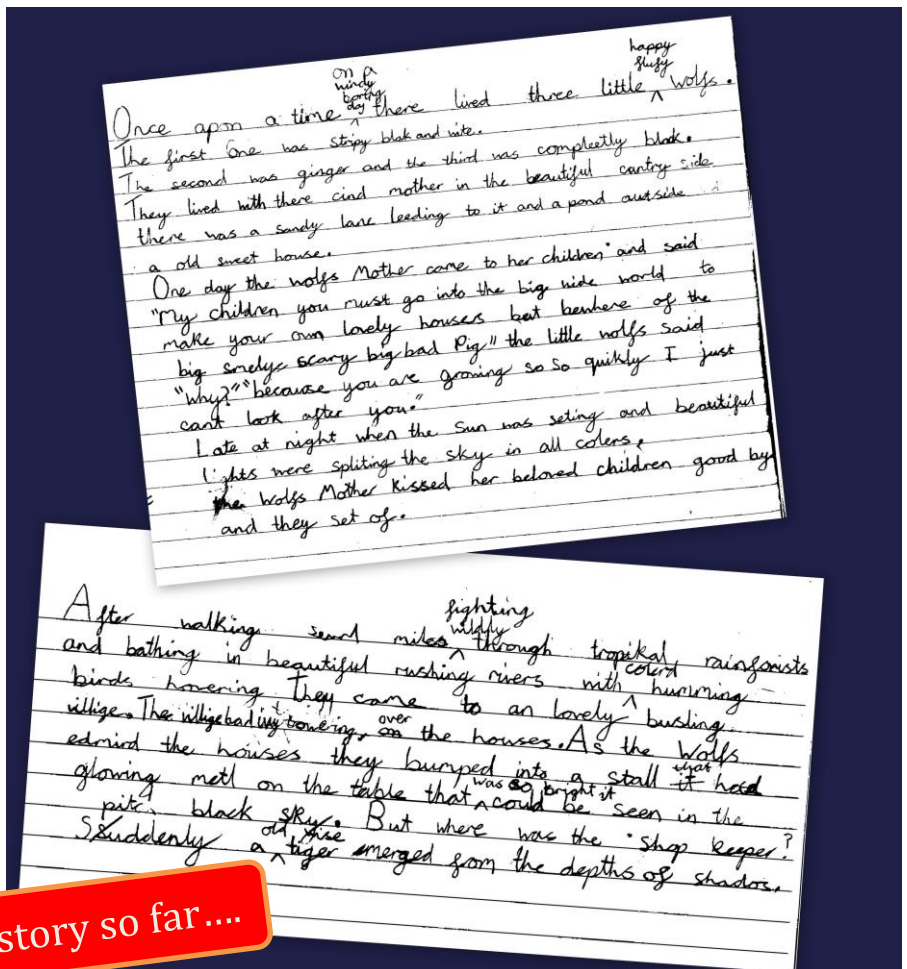 happy
on a
flufy
windy
boring
Once apon a time day there lived three little wolfs.
The first One was stripy blak and wite.
The second was ginger and the third was compleetly blak.
They lived with there cind mother in the beautiful cantry side
there was a sandy lane leeding to it and a pond autside
a old sweet house.
One day the wolfs Mother came to her children and said
"My children you must go into the big wide world to
make your own lovely housers but bewhere of the
big smely scary big bad Pig" the little wolfs said
"Why?" "because you are growing so so quikly I just
cant look after you."
Late at night when the Sun was seting and beautiful
lights were spliting the sky in all colers,
the Wolfs Mother Kissed her beloved children good by
and they set of.
fighting
wildly
After walking miles through tropikal rainforists
colerd
and bathing in beautiful rushing rivers with humming
birds hovering They came to an lovely busling
over
villige. The villige had ivy towering, on the houses. As the Wolfs
that
edmird the houses they bumped into a stall it had
was so bright it
glowing metl on the table that could be seen in the
pitch black sky. But where was the shop keeper?
old, wise
Suddenly a tiger emerged from the depths of shados.
story so far....